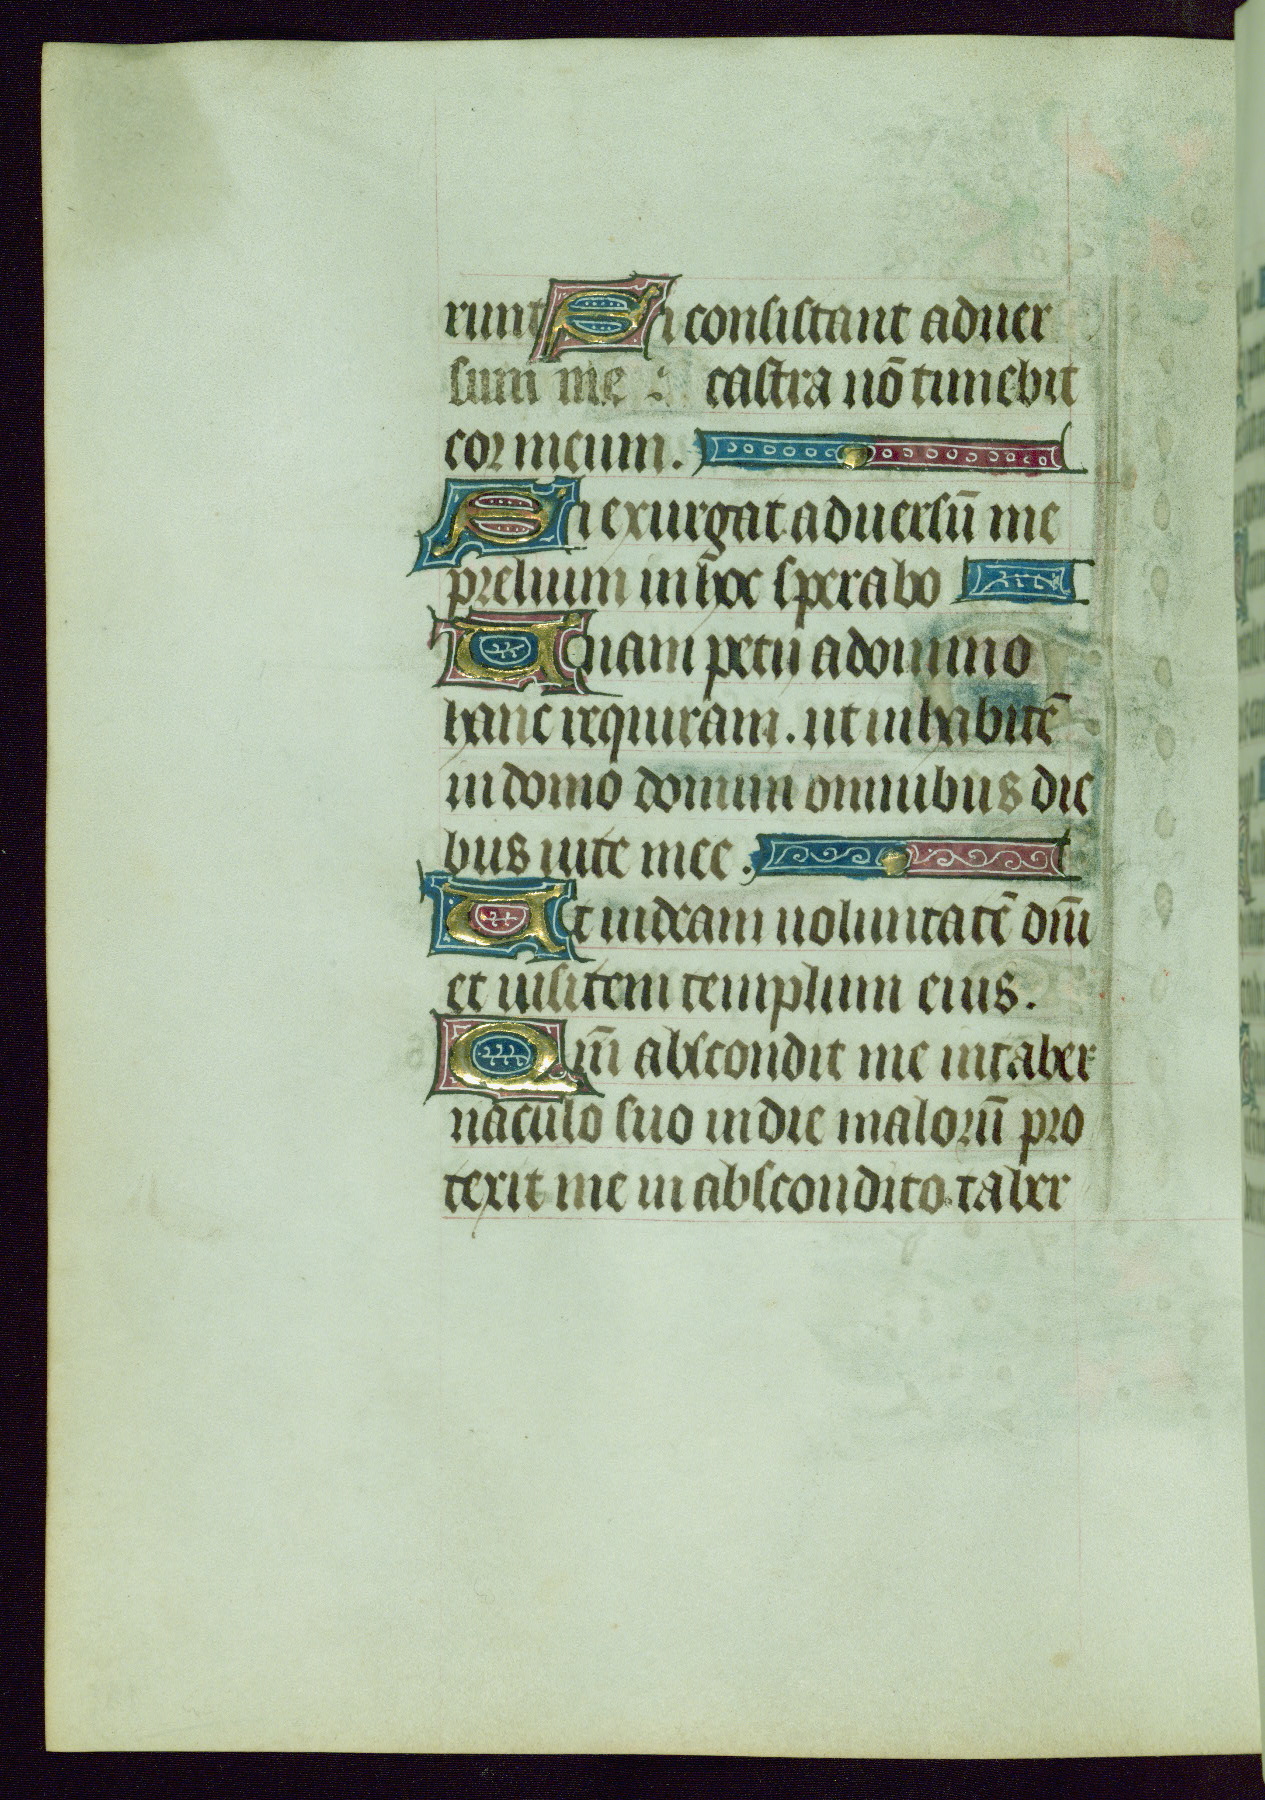 runt Si consistant aduer
sum me : castra nō timebit
cor meum.
Si exurgat aduersū me
prelium in hoc sperabo
Unam petii a domino
hanc requiram. ut inhabitē
in domo domini omnibus die
bus uite mee.
Ut uideam uoluntatē dm̄i
et uisitem templum eius.
Qm̄ abscondit me in taber
naculo suo in die malorū pro
texit me in abscondito taber